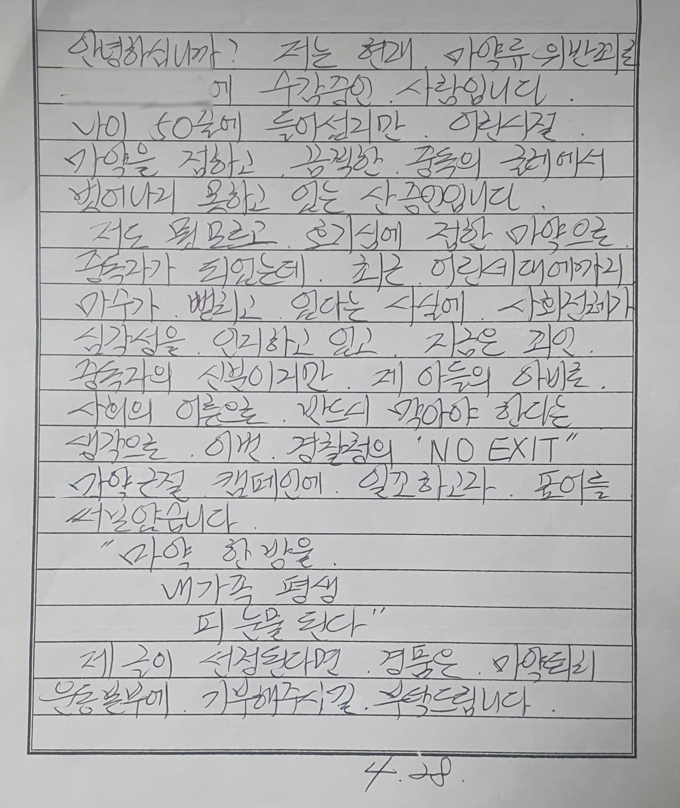 안녕하십니까? 저는 현재 마약류 위반죄로
에 수감중인 사람입니다.
나이 50줄에 들어섰지만. 어린시절
마약을 접하고 끔찍한 중독의 굴레에서
벗어나지 못하고 있는 산증인입니다.
저도 뭣모르고 호기심에 접한 마약으로
중독자가 되었는데. 최근 어린세대에까지
마수가 뻗히고 있다는 사실에 사회전체가
심각성을 인지하고 있고 지금은 죄인
중독자의 신분이지만. 제 아들의 아비로
사회의 어른으로 반드시 막아야 한다는
생각으로 이번 경찰청의 'NO EXIT"
마약근절 캠페인에 일조하고자 표어를
써보았습니다.
"마약 한방울
내가족 평생
피눈물 된다"
제 글이 선정된다면 경품은 마약퇴치
운동본부에 기부해주시길 부탁드립니다.
4.28.